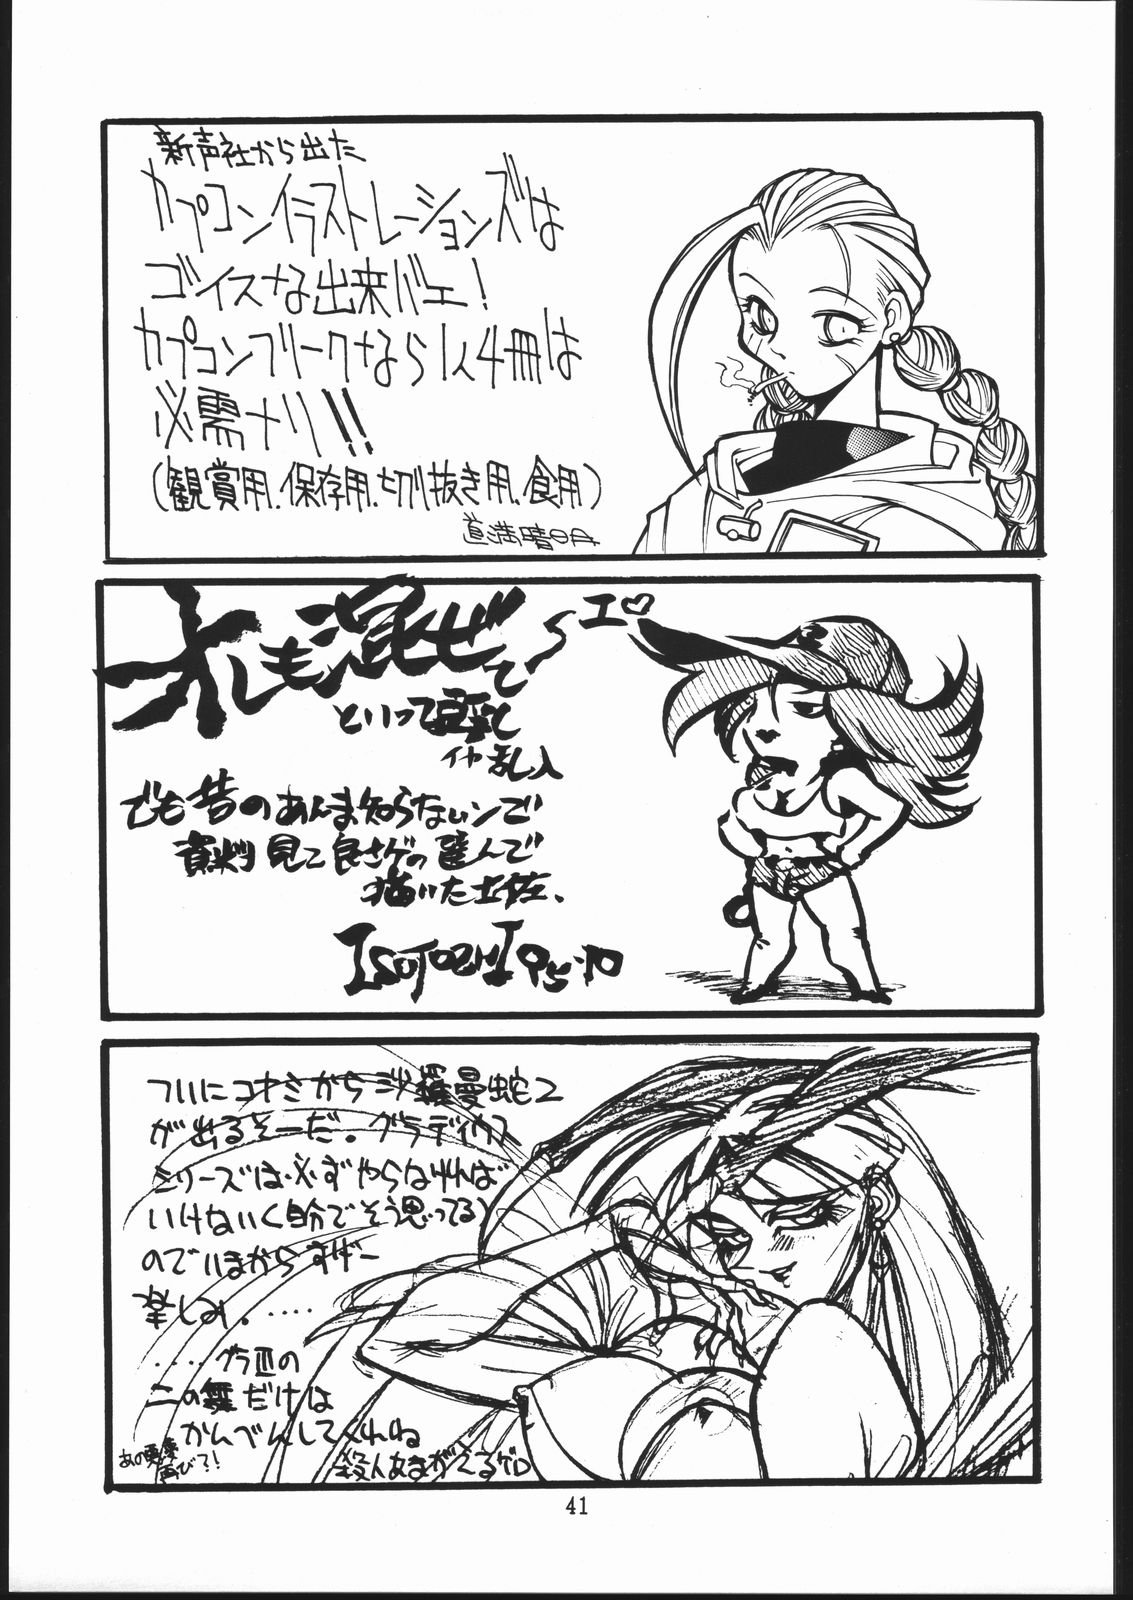 新声社から出た
カプコンイラストレーションズは
ゴイスな出来バエ!
カプコンフリークなら1人4冊は
必需ナリ!!
(観賞用、保存用、切り抜き用、食用)
道満晴明
オレも混ぜて〜エ♡
といって
イヤ 乱入
でも昔のあんま知らないンで
資料見て良さゲの選んで
描いた土佐、
ISUTOSHI 95.10
ついにコナミから沙羅曼蛇2
が出るそーだ。グラディウス
シリーズは必ずやらなければ
いけないく自分でそう思ってる)
のでいまからすげー
楽しみ。……
……グラIIIの
二の舞だけは
かんべんしてくれね
あの悪夢
再び?!
殺人あまがえるゲロ
41